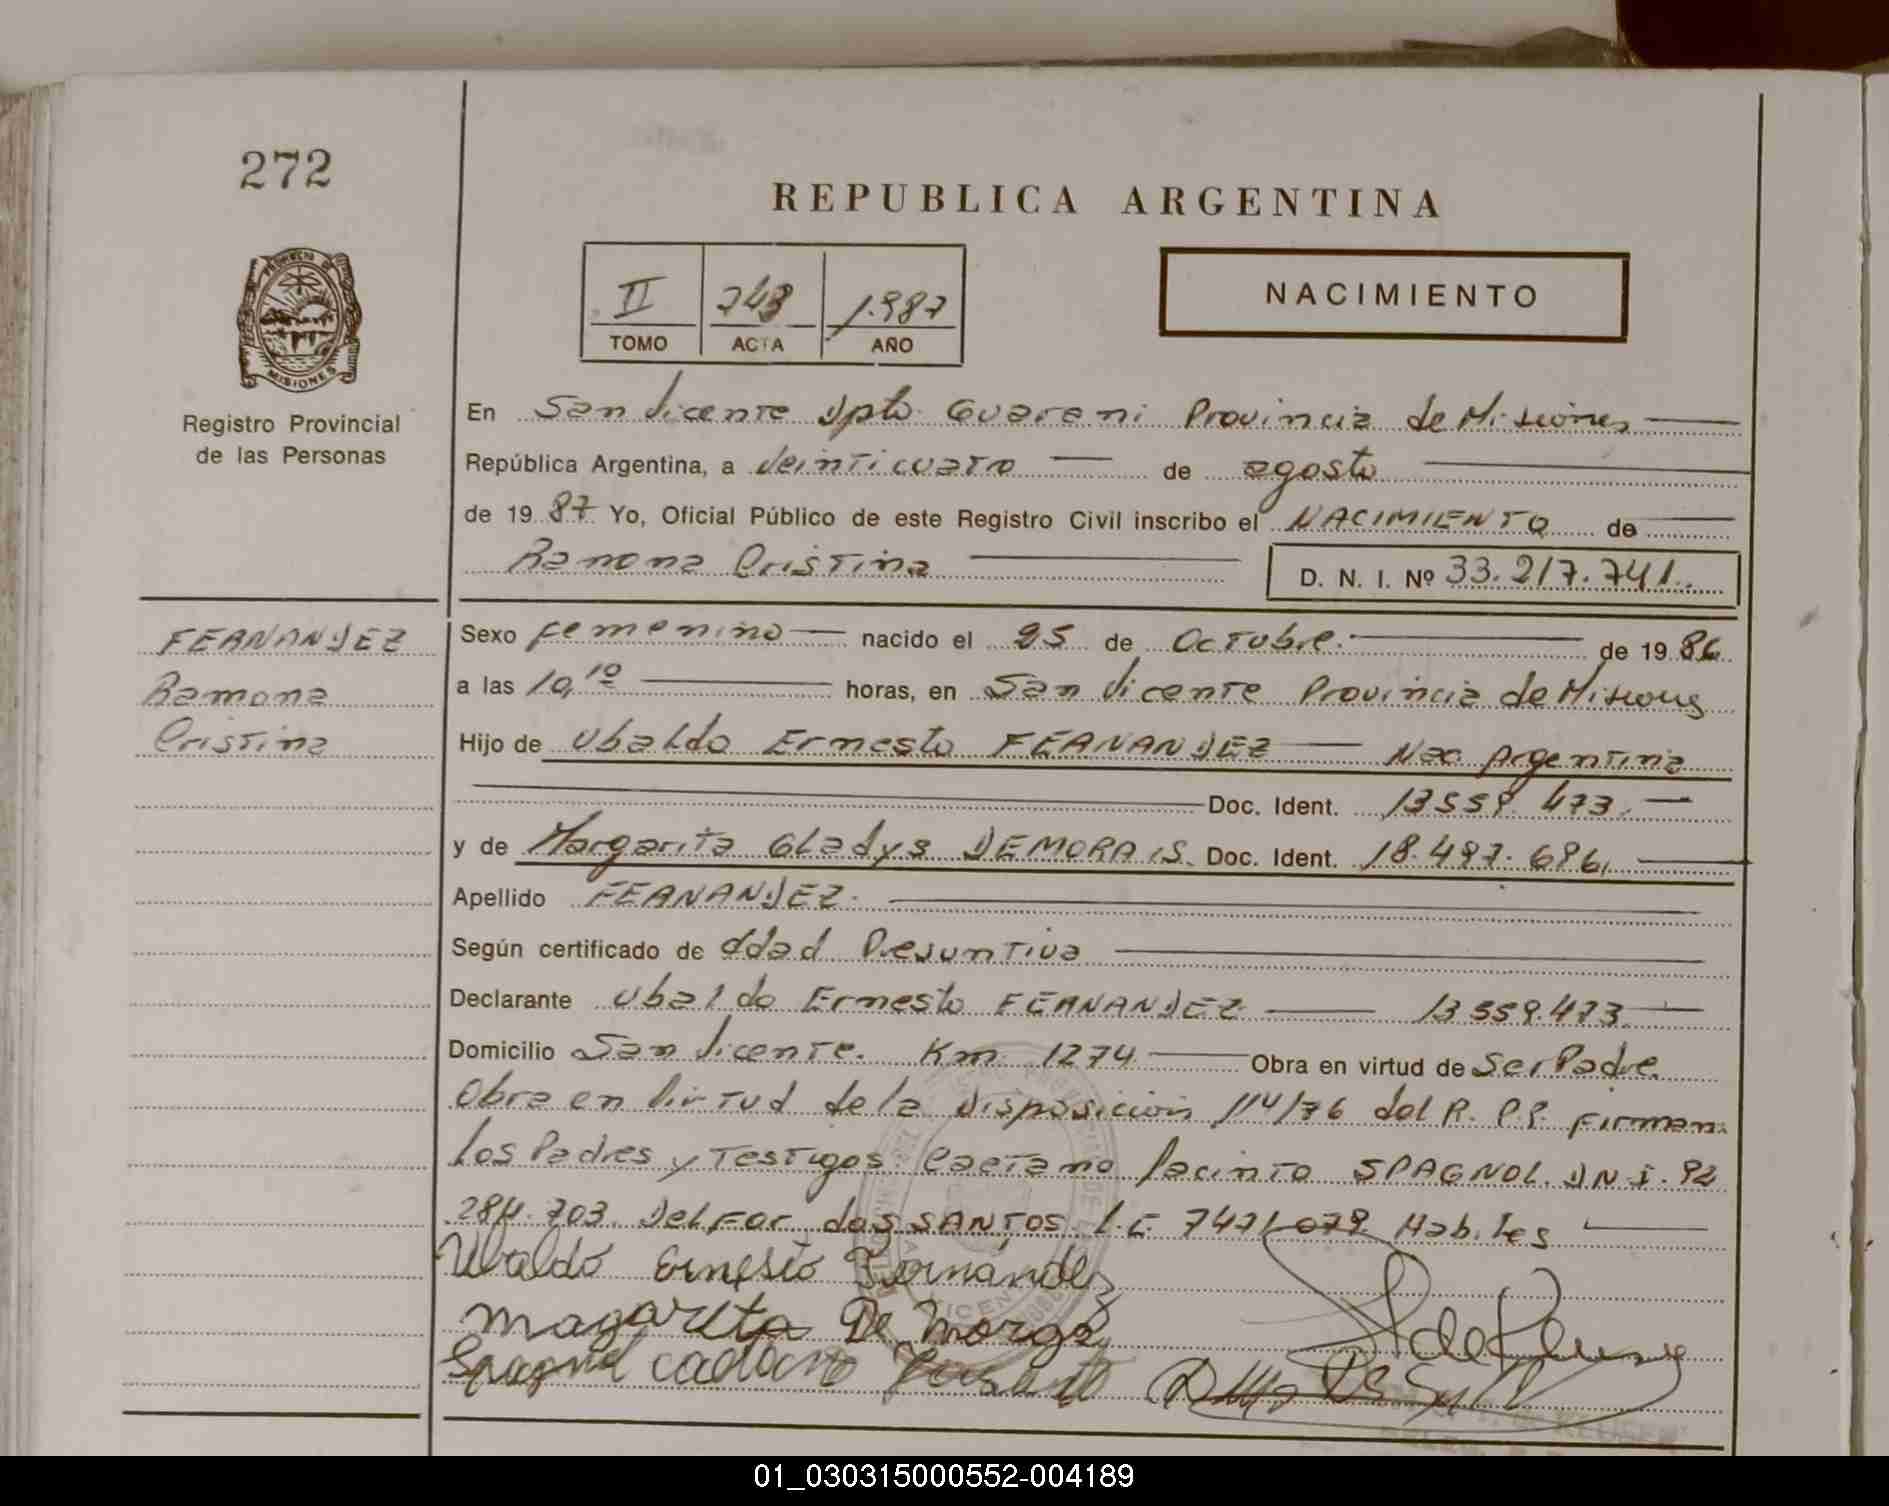 272
REPUBLICA ARGENTINA
PROVINCIA DE MISIONES
II 743 1.987
TOMO ACTA AÑO
NACIMIENTO
Registro Provincial
de las Personas
En San Vicente Dpto. Guarani Provincia de Misiones
República Argentina, a Veinticuatro de agosto
de 19 87 Yo, Oficial Público de este Registro Civil inscribo el NACIMIENTO de
Ramona Cristina D. N. I. Nº 33.217.741.
FERNANDEZ
Ramona
Cristina
Sexo femenino nacido el 25 de Octubre. de 19 86
a las 10,10 horas, en San Vicente Provincia de Misiones
Hijo de Ubaldo Ernesto FERNANDEZ Nac. Argentina
Doc. Ident. 13.559.473.
y de Margarita Gladys DEMORAIS. Doc. Ident. 18.497.696.
Apellido FERNANDEZ.
Según certificado de Edad Presuntiva
Declarante Ubaldo Ernesto FERNANDEZ 13.559.473.
Domicilio San Vicente. Km. 1274 Obra en virtud de Ser Padre.
Obra en Virtud de la Disposicion 114/76 del R. P. P. firman.
los Padres y Testigos. Caetano Jacinto SPAGNOL. D N I. 92
284.703. Delfor dos SANTOS. L.E. 7471079. Habiles
Ubaldo Ernesto Fernandez
Magarita De Morga
Spagnol Caetano
01_030315000552-004189